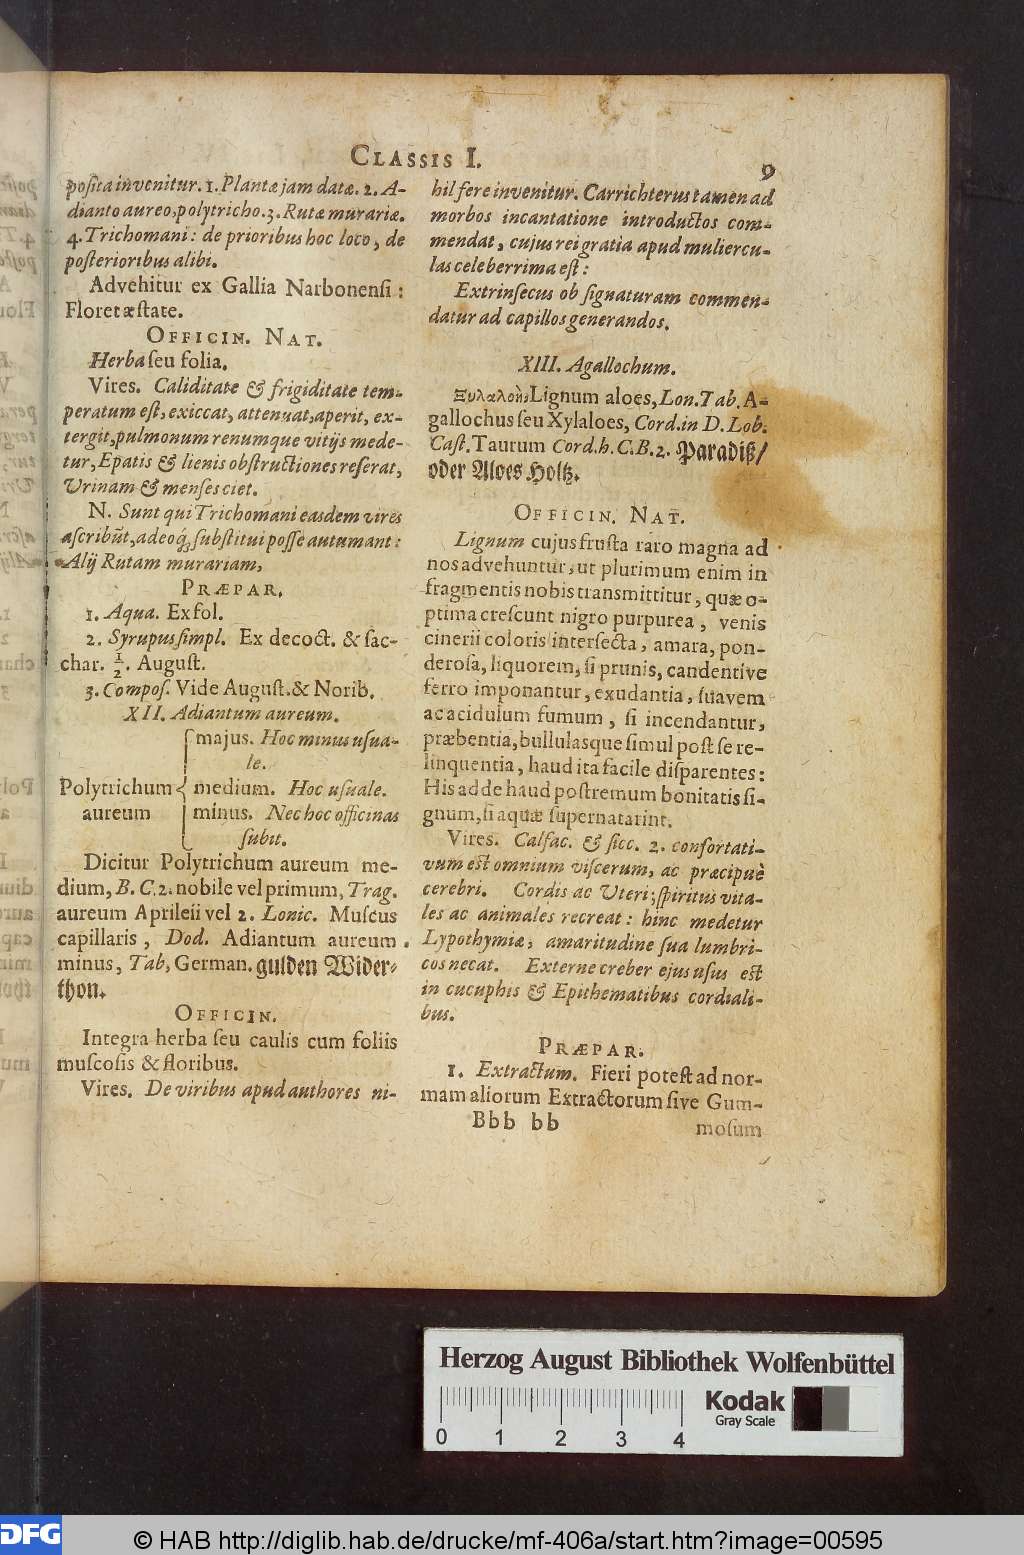 CLASSIS I.
9
posita invenitur. 1. Plantæ jam datæ. 2. A-
dianto aureo, polytricho. 3. Rutæ murariæ.
4. Trichomani: de prioribus hoc loco, de
posterioribus alibi.
Advehitur ex Gallia Narbonensi:
Floret æstate.
OFFICIN. NAT.
Herba seu folia.
Vires. Caliditate & frigiditate tem-
peratum est, exiccat, attenuat, aperit, ex-
tergit, pulmonum renumque vitijs mede-
tur, Epatis & lienis obstructiones reserat,
Urinam & menses ciet.
N. Sunt qui Trichomani easdem vires
ascribūt, adeoq́; substitui posse autumant:
Alij Rutam murariam,
PRÆPAR.
1. Aqua. Ex fol.
2. Syrupus simpl. Ex decoct. & sac-
char. 1/2. August.
3. Compos. Vide August. & Norib.
XII. Adiantum aureum.
majus. Hoc minus usua-
le.
Polytrichum { medium. Hoc usuale.
aureum minus. Nec hoc officinas
subit.
Dicitur Polytrichum aureum me-
dium, B. C. 2. nobile vel primum, Trag.
aureum Aprileii vel 2. Lonic. Muscus
capillaris, Dod. Adiantum aureum.
minus, Tab, German. gulden Wider-
thon.
OFFICIN.
Integra herba seu caulis cum foliis
muscosis & floribus.
Vires. De viribus apud authores ni-
hil fere invenitur. Carrichterus tamen ad
morbos incantatione introductos com-
mendat, cujus rei gratia apud muliercu-
las celeberrima est:
Extrinsecus ob signaturam commen-
datur ad capillos generandos.
XIII. Agallochum.
Ξυλαλοὴ; Lignum aloes, Lon. Tab. A-
gallochus seu Xylaloes, Cord. in D. Lob.
Cast. Taurum Cord. h. C. B. 2. Paradiß/
oder Aloes Holtz.
OFFICIN. NAT.
Lignum cujus frusta raro magna ad
nos advehuntur, ut plurimum enim in
fragmentis nobis transmittitur, quæ o-
ptima crescunt nigro purpurea, venis
cinerii coloris intersecta, amara, pon-
derosa, liquorem, si prunis, candentive
ferro imponantur, exudantia, suavem
ac acidulum fumum, si incendantur,
præbentia, bullulasque simul post se re-
linquentia, haud ita facile disparentes:
His adde haud postremum bonitatis si-
gnum, si aquæ supernatarint.
Vires. Calfac. & sicc. 2. confortati-
vum est omnium viscerum, ac præcipuè
cerebri. Cordis ac Uteri; spiritus vita-
les ac animales recreat: hinc medetur
Lypothymiæ, amaritudine sua lumbri-
cos necat. Externe creber ejus usus est
in cucuphis & Epithematibus cordiali-
bus.
PRÆPAR.
1. Extractum. Fieri potest ad nor-
mam aliorum Extractorum sive Gum-
Bbb bb
mosum
Herzog August Bibliothek Wolfenbüttel
Kodak
Gray Scale
0 1 2 3 4
DFG
© HAB http://diglib.hab.de/drucke/mf-406a/start.htm?image=00595